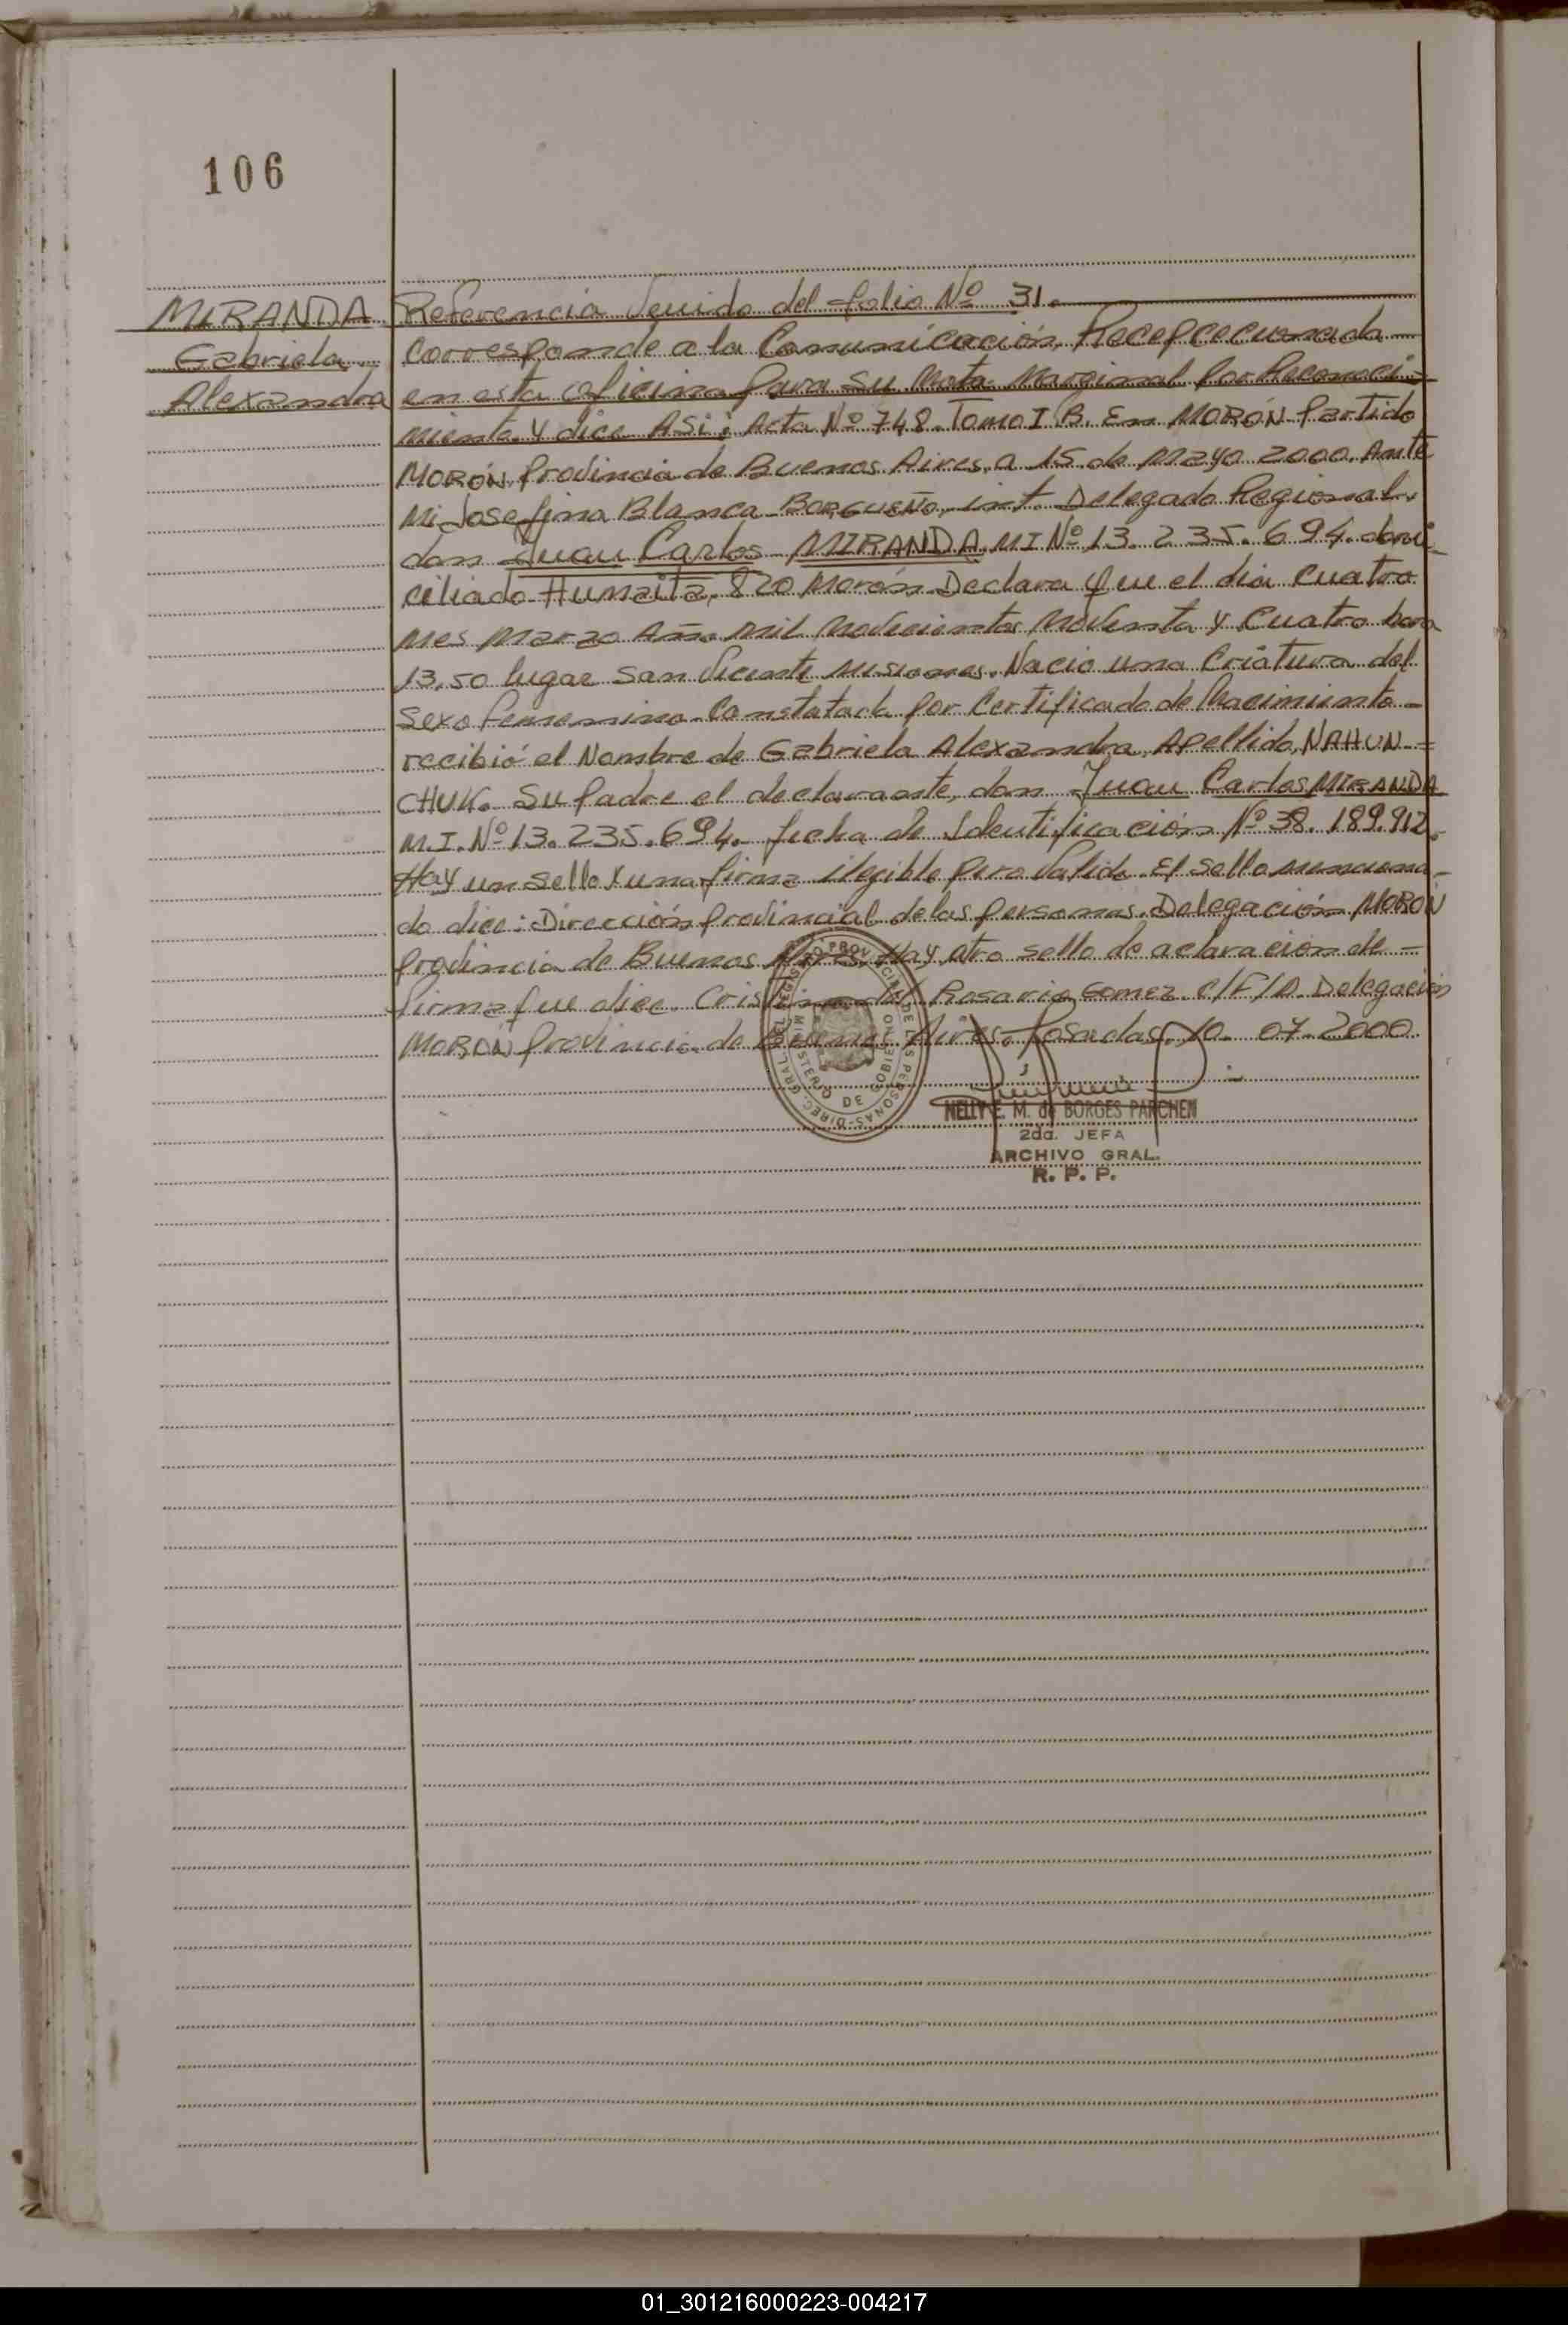 106
MIRANDA
Gabriela
Alexandra
Referencia Venida del folio Nº 31.
Corresponde a la Comunicación, Recepcecionada
en esta oficina para su Nota Marginal por Reconoci=
miento. Y dice ASi: Acta Nº 748. Tomo I B. En MORÓN Partido
MORÓN, Provincia de Buenos Aires, a 15 de Mayo 2000. Ante
Mi Josefina Blanca BORGUEÑO, int. Delegado Regional.
don Juan Carlos MIRANDA MI Nº 13.235.694. domi-
ciliado Humaita, 820 Morón Declara que el dia Cuatro
Mes Marzo Año Mil Novecientos Noventa y Cuatro hora
13,50 lugar San Vicente Misiones. Nacio una Criatura del
Sexo femenino. Constatada por Certificado de Nacimiento-
recibió el Nombre de Gabriela Alexandra, Apellido, NAHUN-=
CHUK. Su padre el declarante, don Juan Carlos MIRANDA
M.I. Nº 13.235.694. ficha de Identificación Nº 38.189.912.
Hay un sello y una firma ilegible pero Valida. El sello menciona-
do dice: Dirección provincial de las personas. Delegación MORON
provincia de Buenos Aires. Hay otro sello de aclaración de -
firma que dice. Cristina del Rosario Gomez. e/F/D. Delegación
MORON provincia de Buenos Aires. Posadas, 10. 07. 2000.
REGISTRO PROVINCIAL DE LAS PERSONAS-DIREC. GRAL.
MINISTERIO DE GOBIERNO
NELLY E. M. de BORGES PARCHEN
2da. JEFA
ARCHIVO GRAL.
R. P. P.
01_301216000223-004217